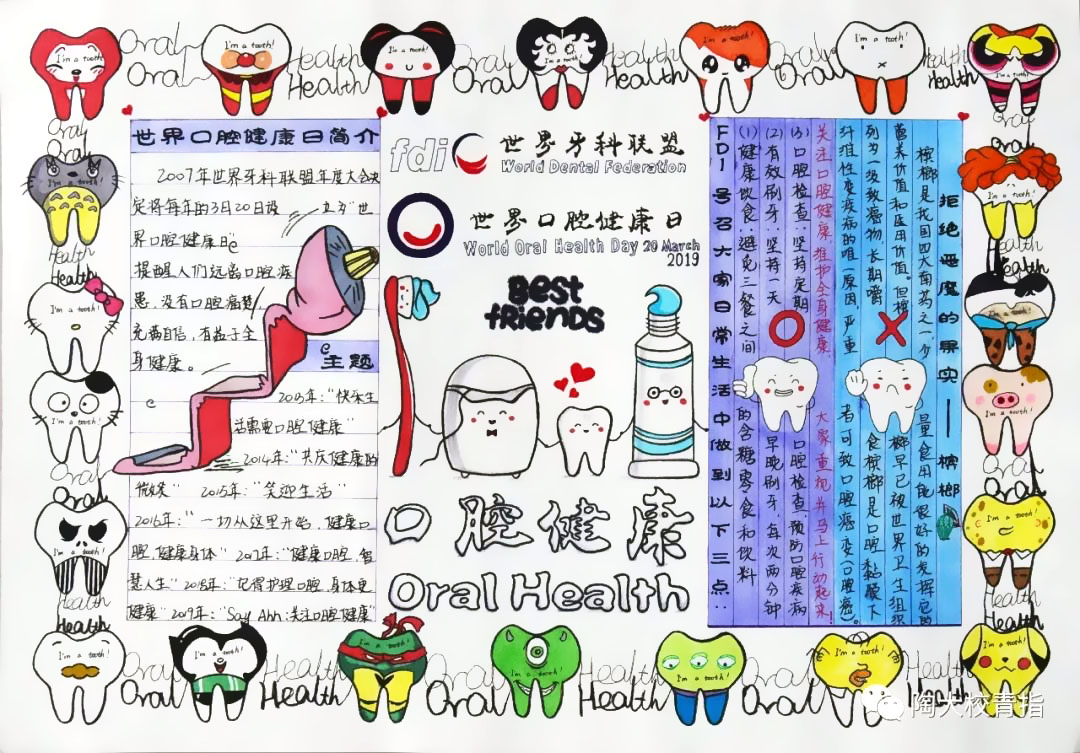 Oral Health Oral Health Oral Health Oral Health
Oral Health Oral Health Oral Health Oral Health
I'm a tooth!
I'm a tooth!
I'm a tooth!
I'm a tooth!
I'm a tooth!
I'm a tooth!
I'm a tooth!
世界口腔健康日简介
2007年世界牙科联盟年度大会决
定将每年的3月20日设立为"世
界口腔健康日"
提醒人们远离口腔疾
患,没有口腔病楚,
充满自信,有益于全
身健康。
主题
2013年:"快乐生
活需要口腔健康"
2014年:"共庆健康的
微笑" 2015年:"笑迎生活"
2016年:"一切从这里开始,健康口
腔,健康身体" 2017年:"健康口腔,智
慧人生" 2018年:"记得护理口腔,身体更
健康" 2019年:"Say Ahh:关注口腔健康"
fdi
世界牙科联盟
World Dental Federation
世界口腔健康日
World Oral Health Day 20 March
2019
Best
friends
口腔健康
Oral Health
拒绝恶魔的果实——槟榔
槟榔是我国四大南药之一,少量食用能很好的发挥它的
营养价值和医用价值。但槟榔早已被世界卫生组织
列为一级致癌物,长期嚼食槟榔是口腔黏膜下
纤维性变疾病的唯一原因,严重者可致口腔癌变(口腔癌)。
关注口腔健康,维护全身健康,大家重视并马上行动起来!
(3)口腔检查:坚持定期口腔检查,预防口腔疾病
(2)有效刷牙:坚持一天早晚刷牙,每次两分钟
(1)健康饮食:避免三餐之间的含糖零食和饮料
FDI号召大家日常生活中做到以下三点:
I'm a tooth!
I'm a tooth!
I'm a tooth!
I'm a tooth!
I'm a tooth!
I'm a tooth!
I'm a tooth!
I'm a tooth!
I'm a tooth!
I'm a tooth!
I'm a tooth!
Oral Health Oral Health Oral Health
陶大校青指